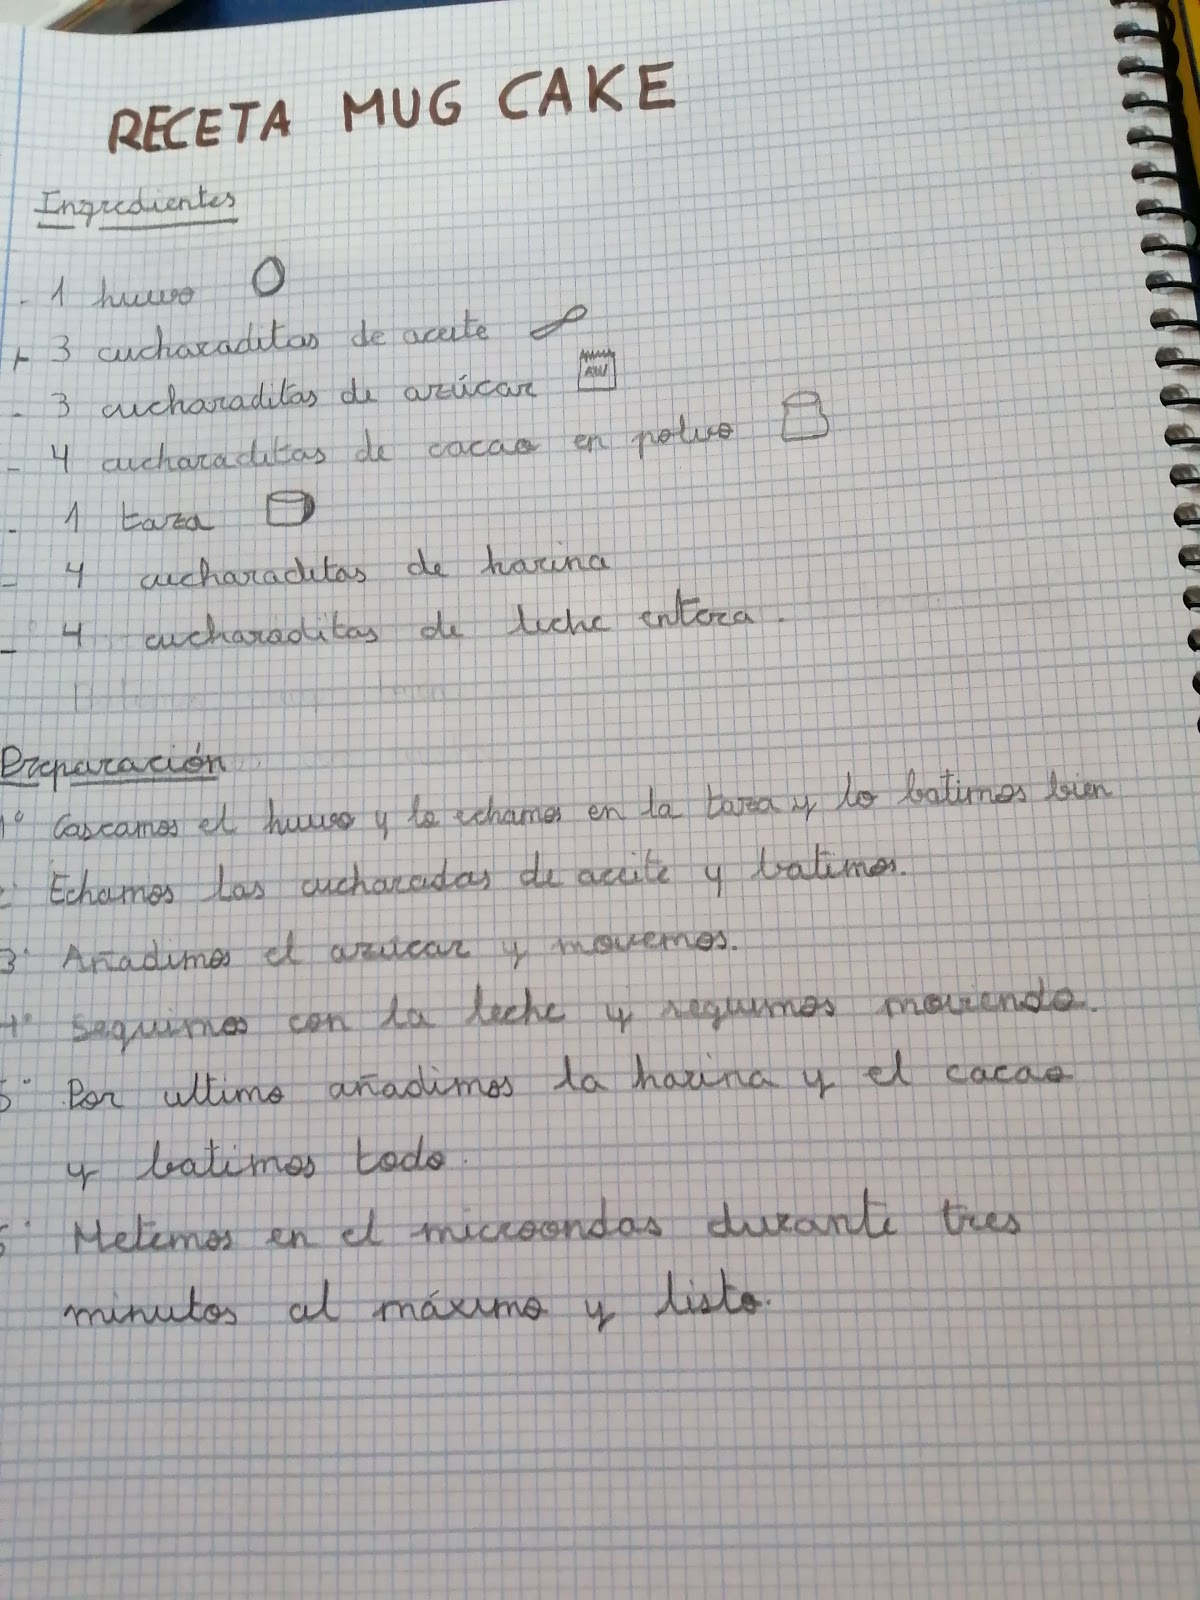 RECETA MUG CAKE
Ingredientes
- 1 huevo
- 3 cucharaditas de aceite
- 3 cucharaditas de azúcar
- 4 cucharaditas de cacao en polvo
- 1 taza
- 4 cucharaditas de harina
- 4 cucharaditas de leche entera.
Preparación
1º Cascamos el huevo y lo echamos en la taza y lo batimos bien
2º Echamos las cucharadas de aceite y batimos.
3º Añadimos el azúcar y movemos.
4º Seguimos con la leche y seguimos moviendo.
5º Por ultimo añadimos la harina y el cacao
y batimos todo.
6º Metemos en el microondas durante tres
minutos al máximo y listo.